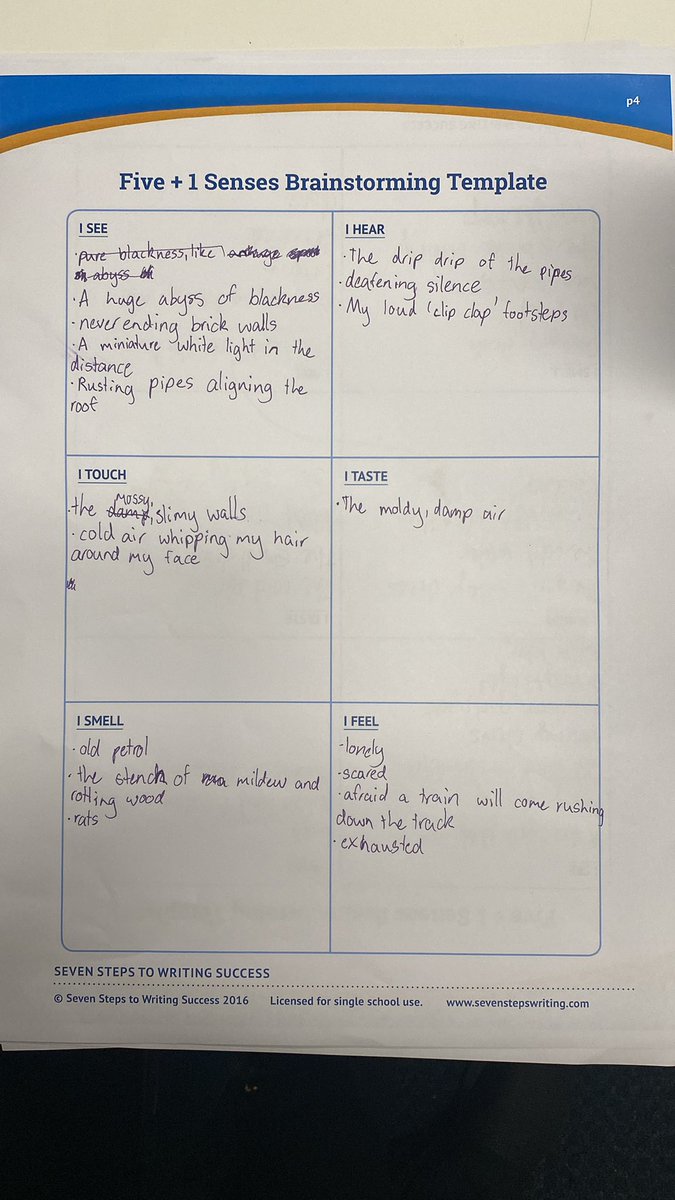 p4
Five + 1 Senses Brainstorming Template
I SEE
· pure blackness, like
abyss
· A huge abyss of blackness
· never ending brick walls
· A miniature white light in the
distance
· Rusting pipes aligning the
roof
I HEAR
· The drip drip of the pipes
· deafening silence
· My loud 'clip clap' footsteps
I TOUCH
Mossy,
· the damp, slimy walls
· cold air whipping my hair
around my face
I TASTE
· The moldy, damp air
I SMELL
· old petrol
· the stench of mildew and
rotting wood
· rats
I FEEL
- lonely
- scared
· afraid a train will come rushing
down the track
· exhausted
SEVEN STEPS TO WRITING SUCCESS
© Seven Steps to Writing Success 2016 Licensed for single school use. www.sevenstepswriting.com